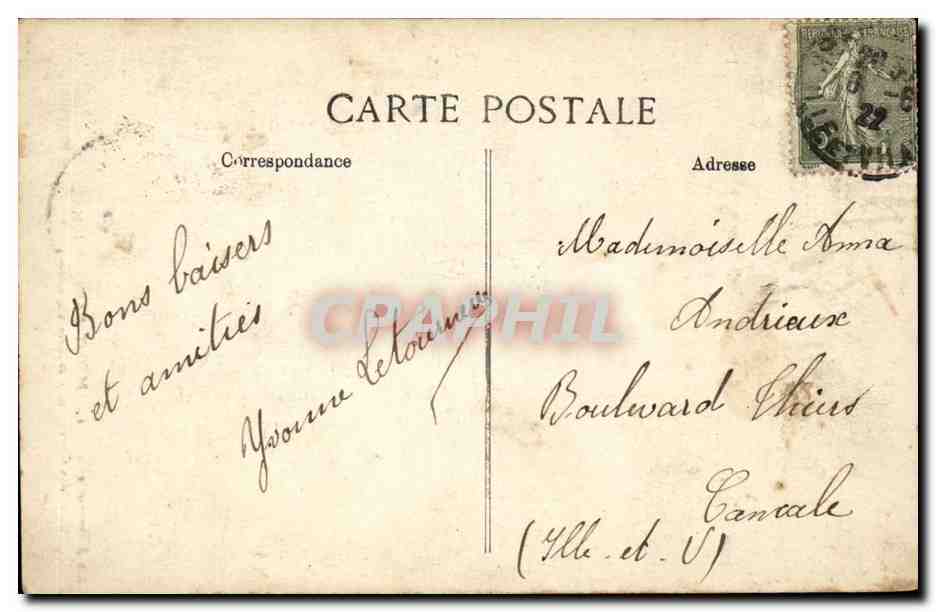 CARTE POSTALE
Correspondance
Adresse
REPUBLIQUE FRANÇAISE
22
Bons baisers
et amitiés
Yvonne Letourneur
Mademoiselle Anna
Andrieux
Boulevard Thiers
Cancale
(Ille-et-V)
CPAPHIL